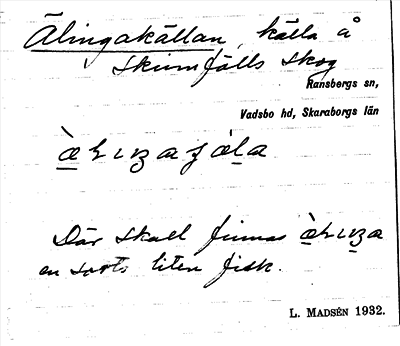 Älingakällan, källa å
Skumfälls skog
Ransbergs sn,
Vadsbo hd, Skaraborgs län
Där skall finnas
en sorts liten fisk.
L. MADSÉN 1932.